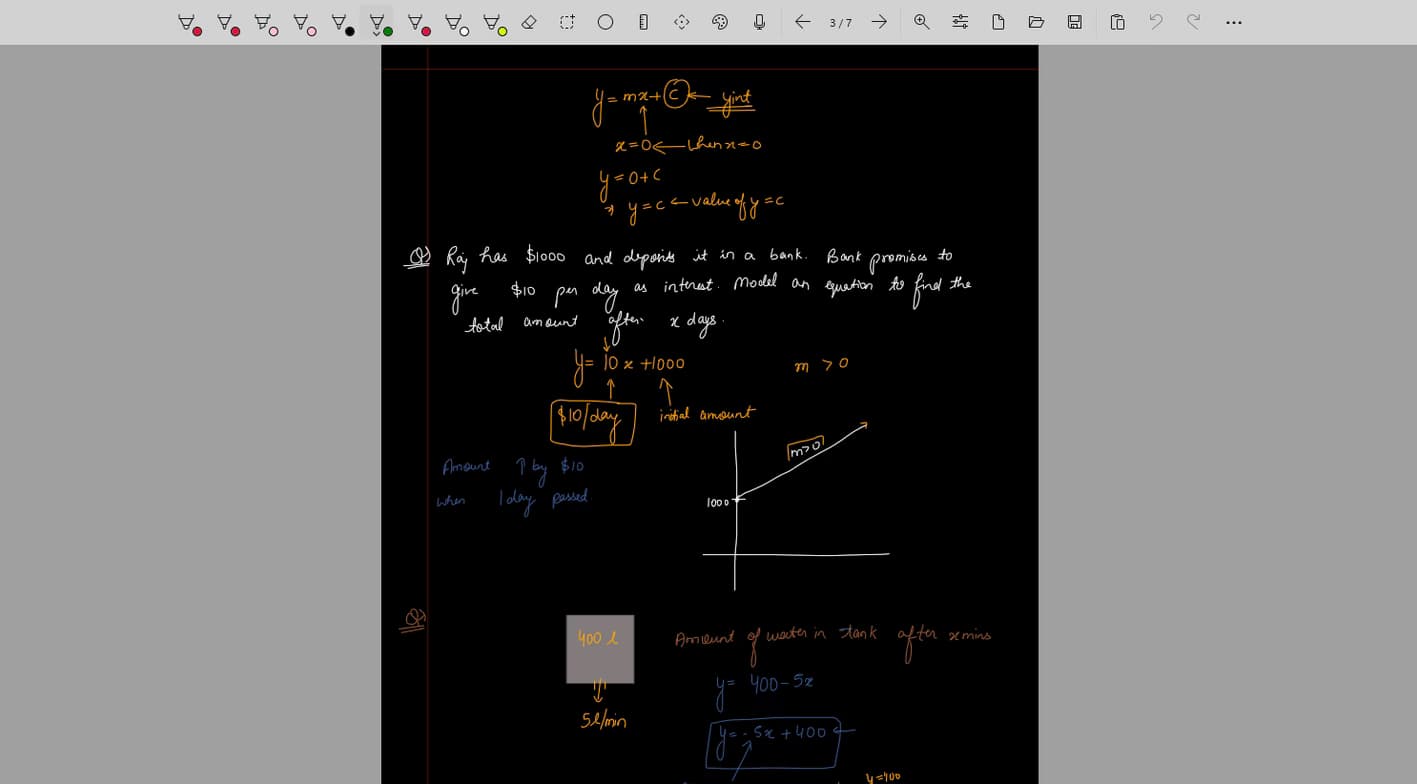 3 / 7
y = mx + c ← yint
x = 0 ← when x = 0
y = 0 + c
→ y = c ← value of y = c
Q) Raj has $1000 and deposits it in a bank. Bank promises to
give $10 per day as interest. Model an equation to find the
total amount after x days.
y = 10x + 1000
m > 0
$10/day
initial amount
Amount ↑ by $10
when 1 day passed
m>0
1000
Q)
400 l
5l/min
Amount of water in tank after x mins
y = 400 - 5x
y = -5x + 400 ←
y = 400